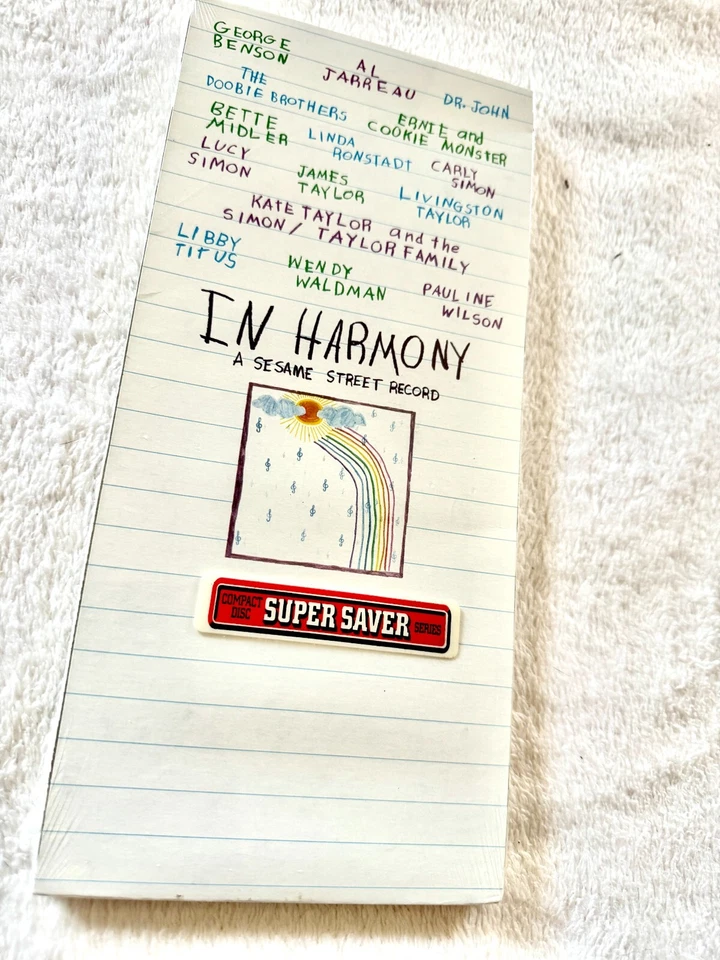 GEORGE
BENSON
AL
JARREAU
DR. JOHN
THE
DOOBIE BROTHERS
ERNIE and
COOKIE MONSTER
BETTE
MIDLER
LINDA
RONSTADT
CARLY
SIMON
LUCY
SIMON
JAMES
TAYLOR
LIVINGSTON
TAYLOR
KATE TAYLOR and the
SIMON/ TAYLOR FAMILY
LIBBY
TITUS
WENDY
WALDMAN
PAULINE
WILSON
IN HARMONY
A SESAME STREET RECORD
COMPACT
DISC
SUPER SAVER
SERIES